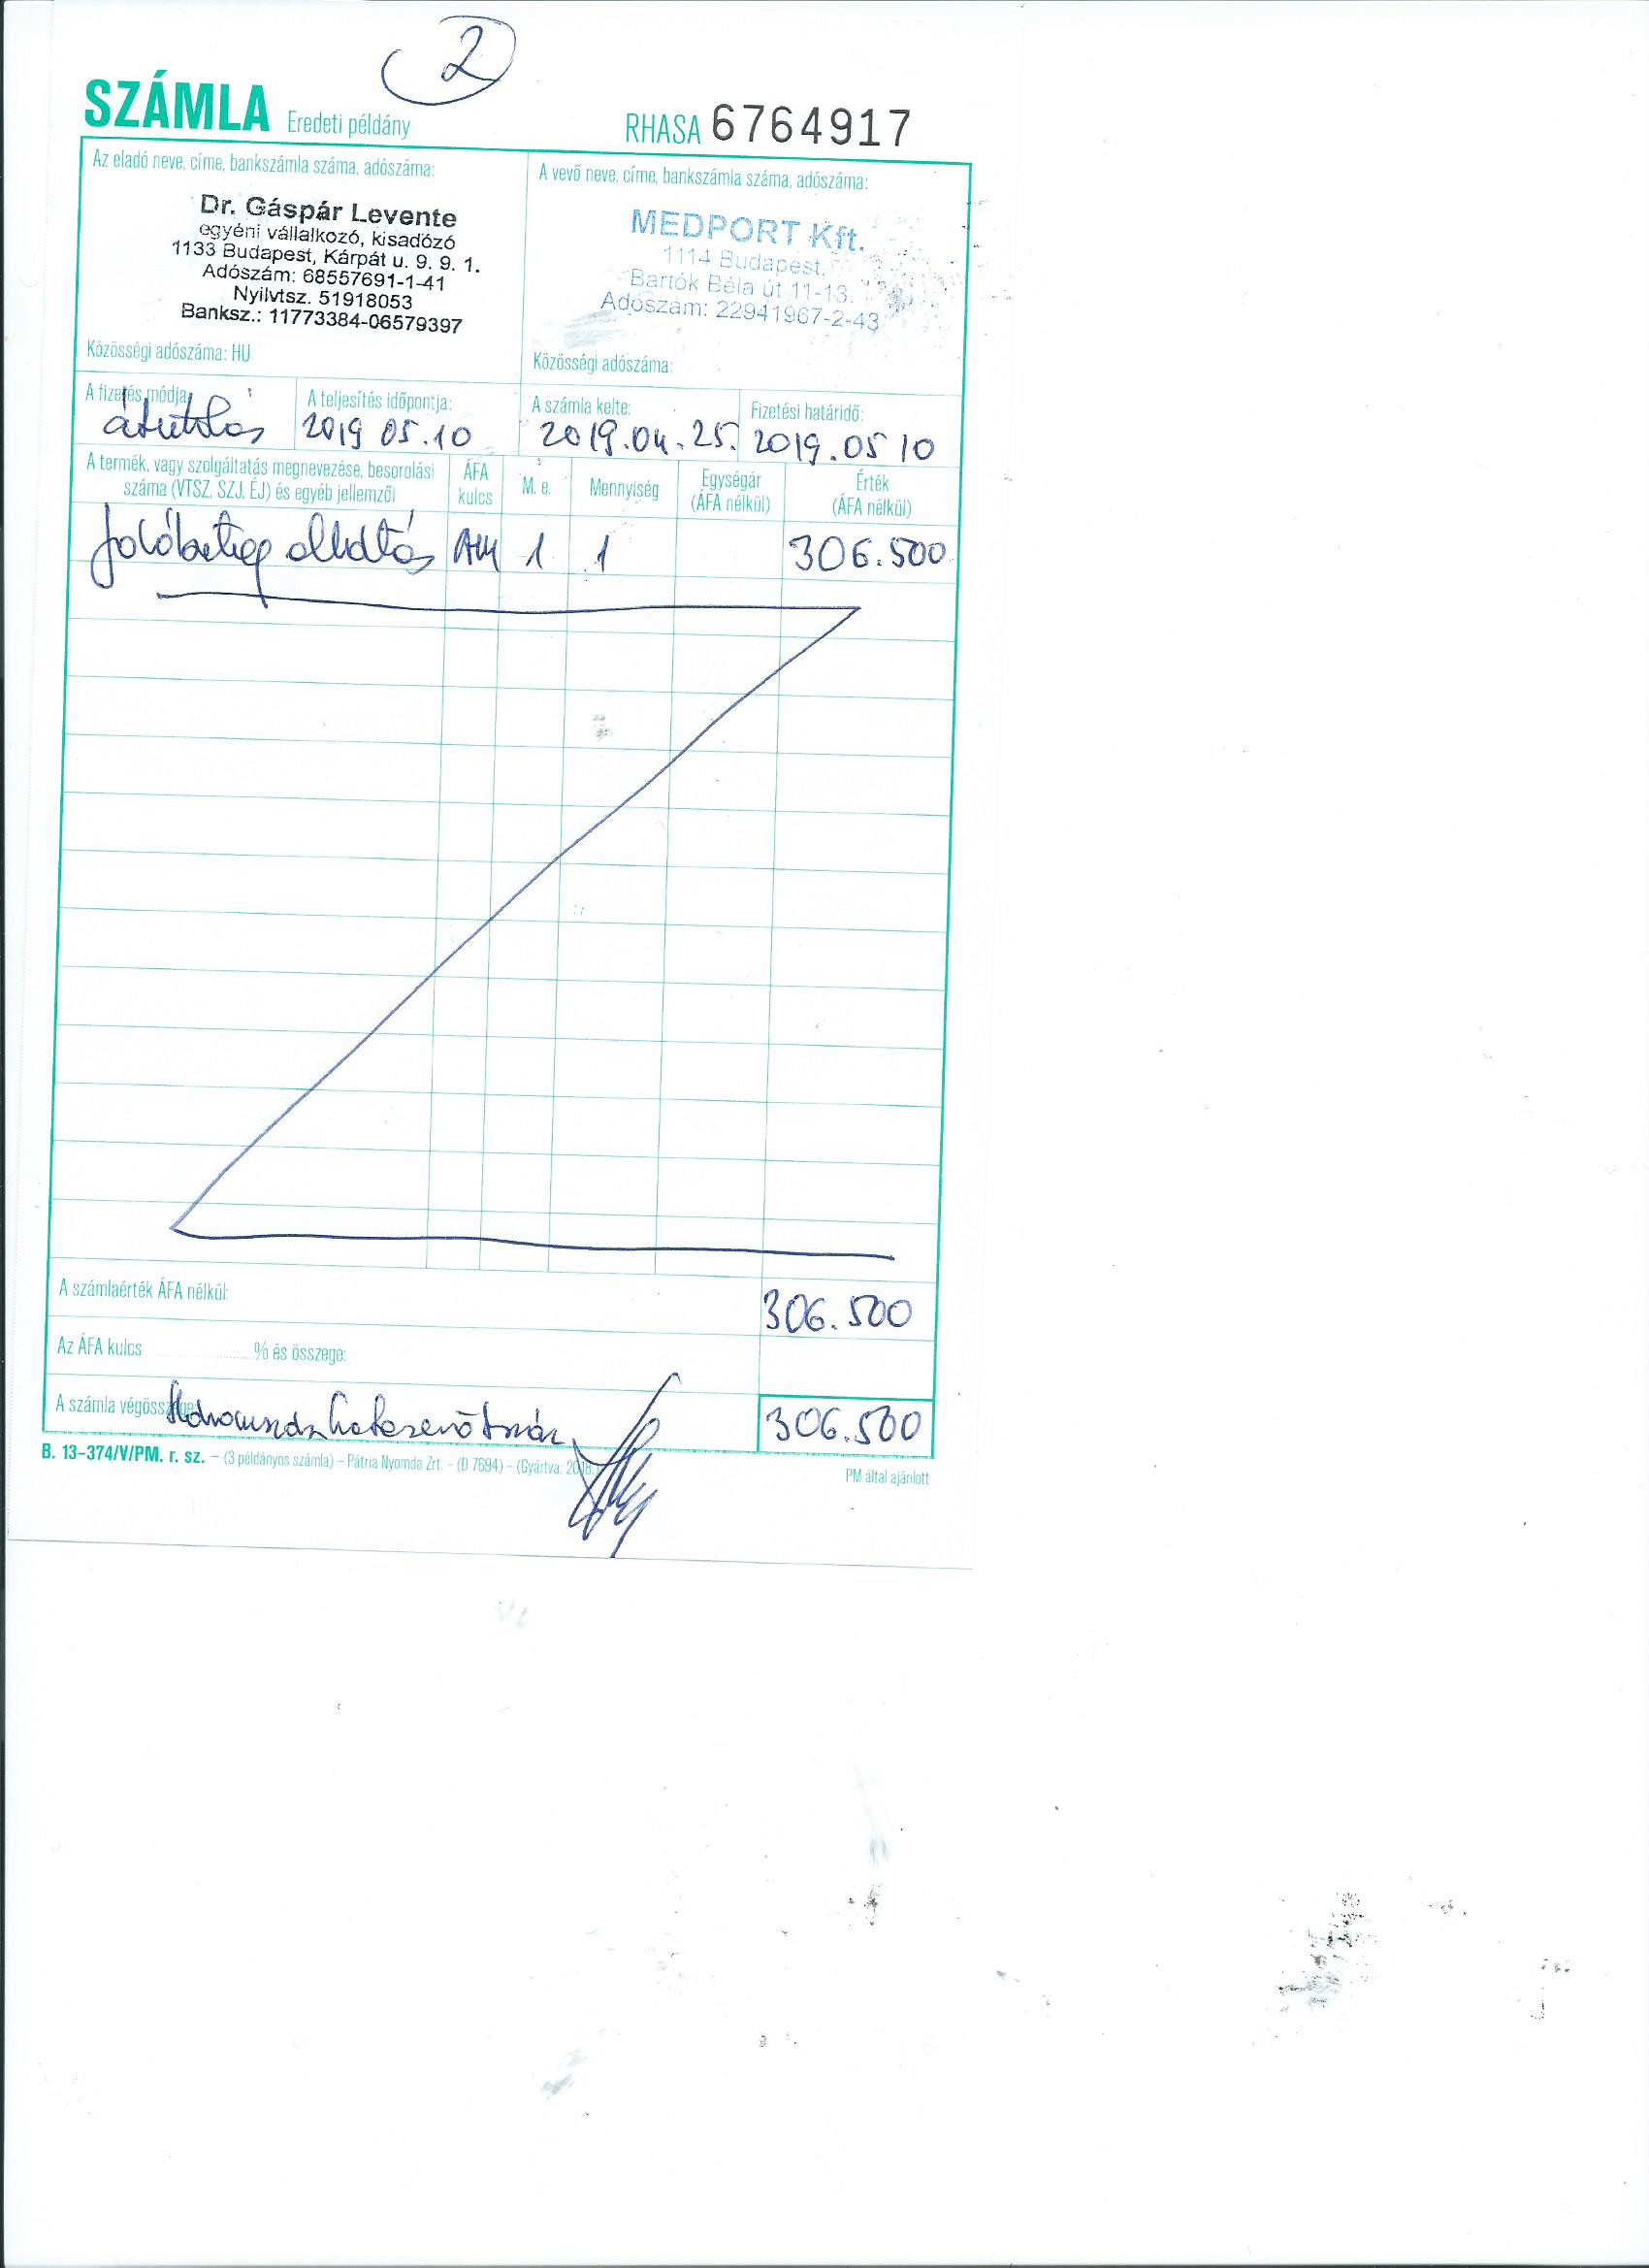 2
SZÁMLA Eredeti példány RHASA 6764917
Az eladó neve, címe, bankszámla száma, adószáma:
Dr. Gáspár Levente
egyéni vállalkozó, kisadózó
1133 Budapest, Kárpát u. 9. 9. 1.
Adószám: 68557691-1-41
Nyilvtsz. 51918053
Banksz.: 11773384-06579397
Közösségi adószáma: HU
A vevő neve, címe, bankszámla száma, adószáma:
MEDPORT Kft.
1114 Budapest,
Bartók Béla út 11-13.
Adószám: 22941967-2-43
Közösségi adószáma:
A fizetés módja: A teljesítés időpontja: A számla kelte: Fizetési határidő:
átutalás 2019 05.10 2019.04.25. 2019.05 10
A termék, vagy szolgáltatás megnevezése, besorolási száma (VTSZ, SZJ, ÉJ) és egyéb jellemzői ÁFA kulcs M. e. Mennyiség Egységár (ÁFA nélkül) Érték (ÁFA nélkül)
járóbeteg ellátás AM 1 1 306.500
A számlaérték ÁFA nélkül: 306.500
Az ÁFA kulcs % és összege:
A számla végösszege: 306.500
B. 13-374/V/PM. r. sz. – (3 példányos számla) – Pátria Nyomda Zrt. – (D 7694) – (Gyártva:
PM által ajánlott